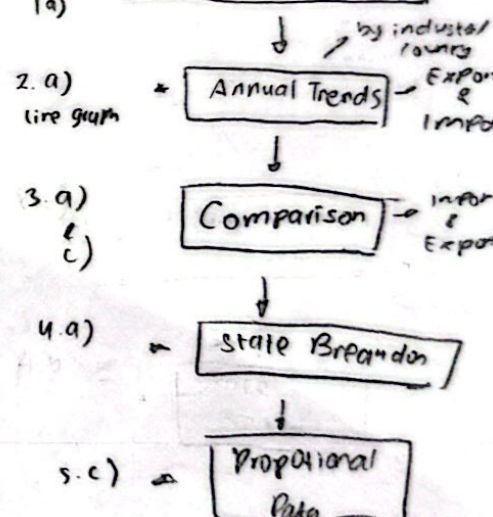 1a)
by industry/
country
2. a)
line graph
Annual Trends
Expor
&
Impo
3. a)
&
c)
Comparison
Impor
&
Expor
4. a)
State Breakdon
5. c)
Propotional
Data